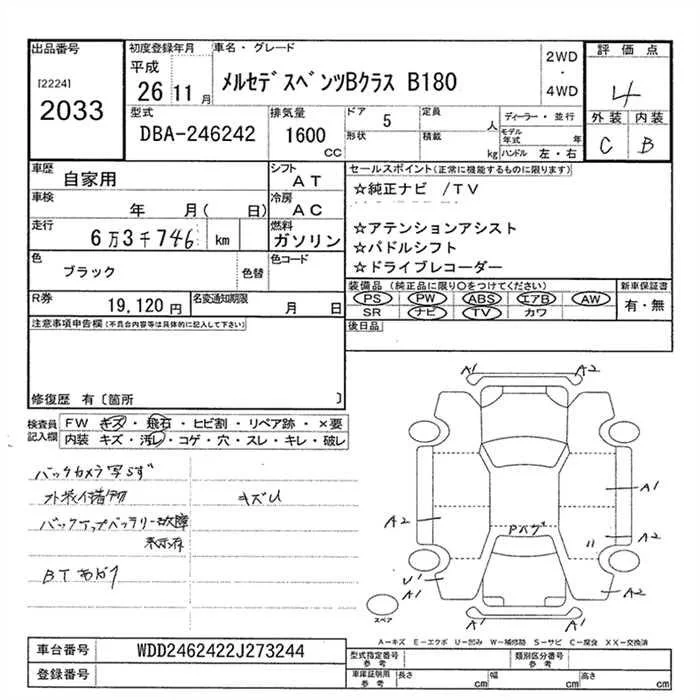 出品番号
[2224]
2033
初度登録年月
平成
26 11 月
車名・グレード
メルセデスベンツBクラス B180
2WD
・
4WD
評価点
4
外装 内装
C B
型式
DBA-246242
排気量
1600
CC
ドア 5
形状
定員 人
積載 kg
ディーラー・並行
モデル年式 年
ハンドル 左・右
車歴
自家用
シフト
AT
車検
年 月( 日)
冷房
AC
走行
6万3千746 km
燃料
ガソリン
色
ブラック
色替
色コード
R券
19,120円
名変通知期限
月 日
セールスポイント(正常に機能するものに限ります)
☆純正ナビ /TV
☆アテンションアシスト
☆パドルシフト
☆ドライブレコーダー
装備品 (純正品に限り○をつけてください)
PS PW ABS エアB AW
SR ナビ TV カワ
新車保証書
有・無
後日品
注意事項申告欄(不具合内容等は具体的に記入して下さい)
修復歴 有〔箇所 〕
検査員記入欄
FW キズ・飛石・ヒビ割・リペア跡・×要
内装 キズ・汚レ・コゲ・穴・スレ・キレ・破レ
バックカメラ写らず
外装付着物 キズU
バックアップバッテリー故障
表示有
BTあがり
A1 A2
A1
A2
A2
Pハゲ
〃
U1
A1
A2
A1 A1
スペア
A-キズ E-エクボ U-凹み W-補修跡 S-サビ C-腐食 XX-交換済
車台番号
WDD2462422J273244
登録番号
型式指定番号
参考
類別区分番号
参考
車庫証明用
参考
長さ cm 幅 cm 高さ cm